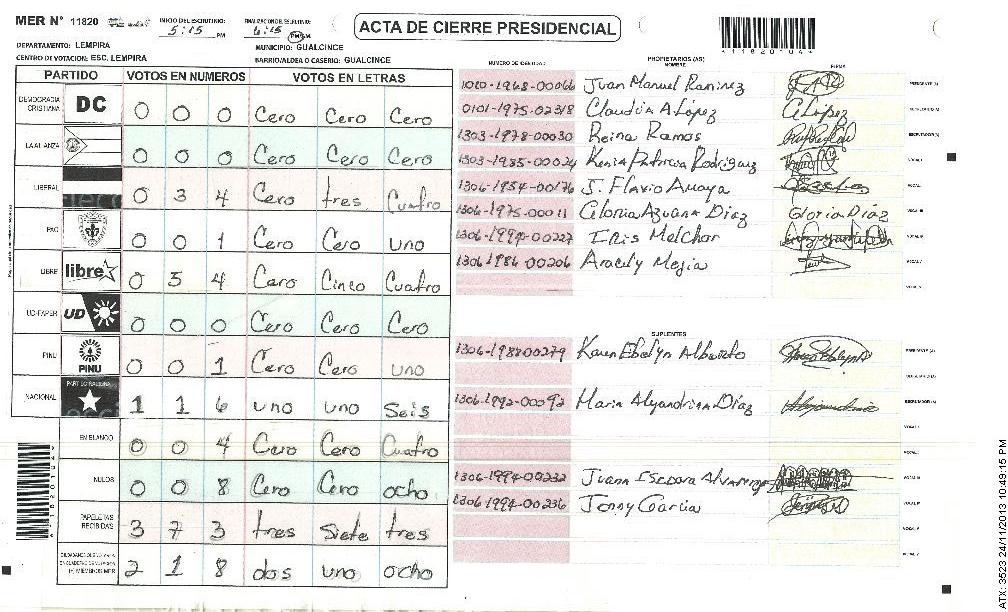 MER N° 11820
INICIO DEL ESCRUTINIO:
5:15 PM
FINALIZACION DEL ESCRUTINIO:
6:15
ACTA DE CIERRE PRESIDENCIAL
11820104
DEPARTAMENTO: LEMPIRA
MUNICIPIO: GUALCINCE
CENTRO DE VOTACION: ESC. LEMPIRA
BARRIO/ALDEA O CASERIO: GUALCINCE
PARTIDO VOTOS EN NUMEROS VOTOS EN LETRAS
DEMOCRACIA CRISTIANA DC 0 0 0 Cero Cero Cero
LA ALIANZA 0 0 0 Cero Cero Cero
LIBERAL 0 3 4 Cero tres Cuatro
PAC 0 0 1 Cero Cero uno
LIBRE libre 0 5 4 Cero Cinco Cuatro
UD-FAPER UD 0 0 0 Cero Cero Cero
PINU PINU 0 0 1 Cero Cero uno
NACIONAL 1 1 6 uno uno Seis
EN BLANCO 0 0 4 Cero Cero Cuatro
NULOS 0 0 8 Cero Cero ocho
PAPELETAS RECIBIDAS 3 7 3 tres Siete tres
2 1 8 dos uno ocho
NUMERO DE IDENTIDAD
PROPIETARIOS (AS)
NOMBRE
FIRMA
1010-1968-00066 Juan Manuel Ramirez
0101-1975-02318 Claudia A López
1303-1978-00030 Reina Ramos
1303-1985-00024 Kenia Patricia Rodriguez
1306-1954-00176 J. Flavio Amaya
1306-1975-00011 Gloria Azucena Diaz Gloria Díaz
1306-1994-00227 Iris Melchor
1306 1986-00206 Aracely Mejia
SUPLENTES
1306-1988-00279 Karen Ebelyn Alberto
1306-1992-00092 Maria Alejandrina Diaz
1306-1994-00232 Juana Isidora Alvarenga
1306 1994-00236 Jenny Garcia
11820104
ATX: 3523 24/11/2013 10:49:15 PM